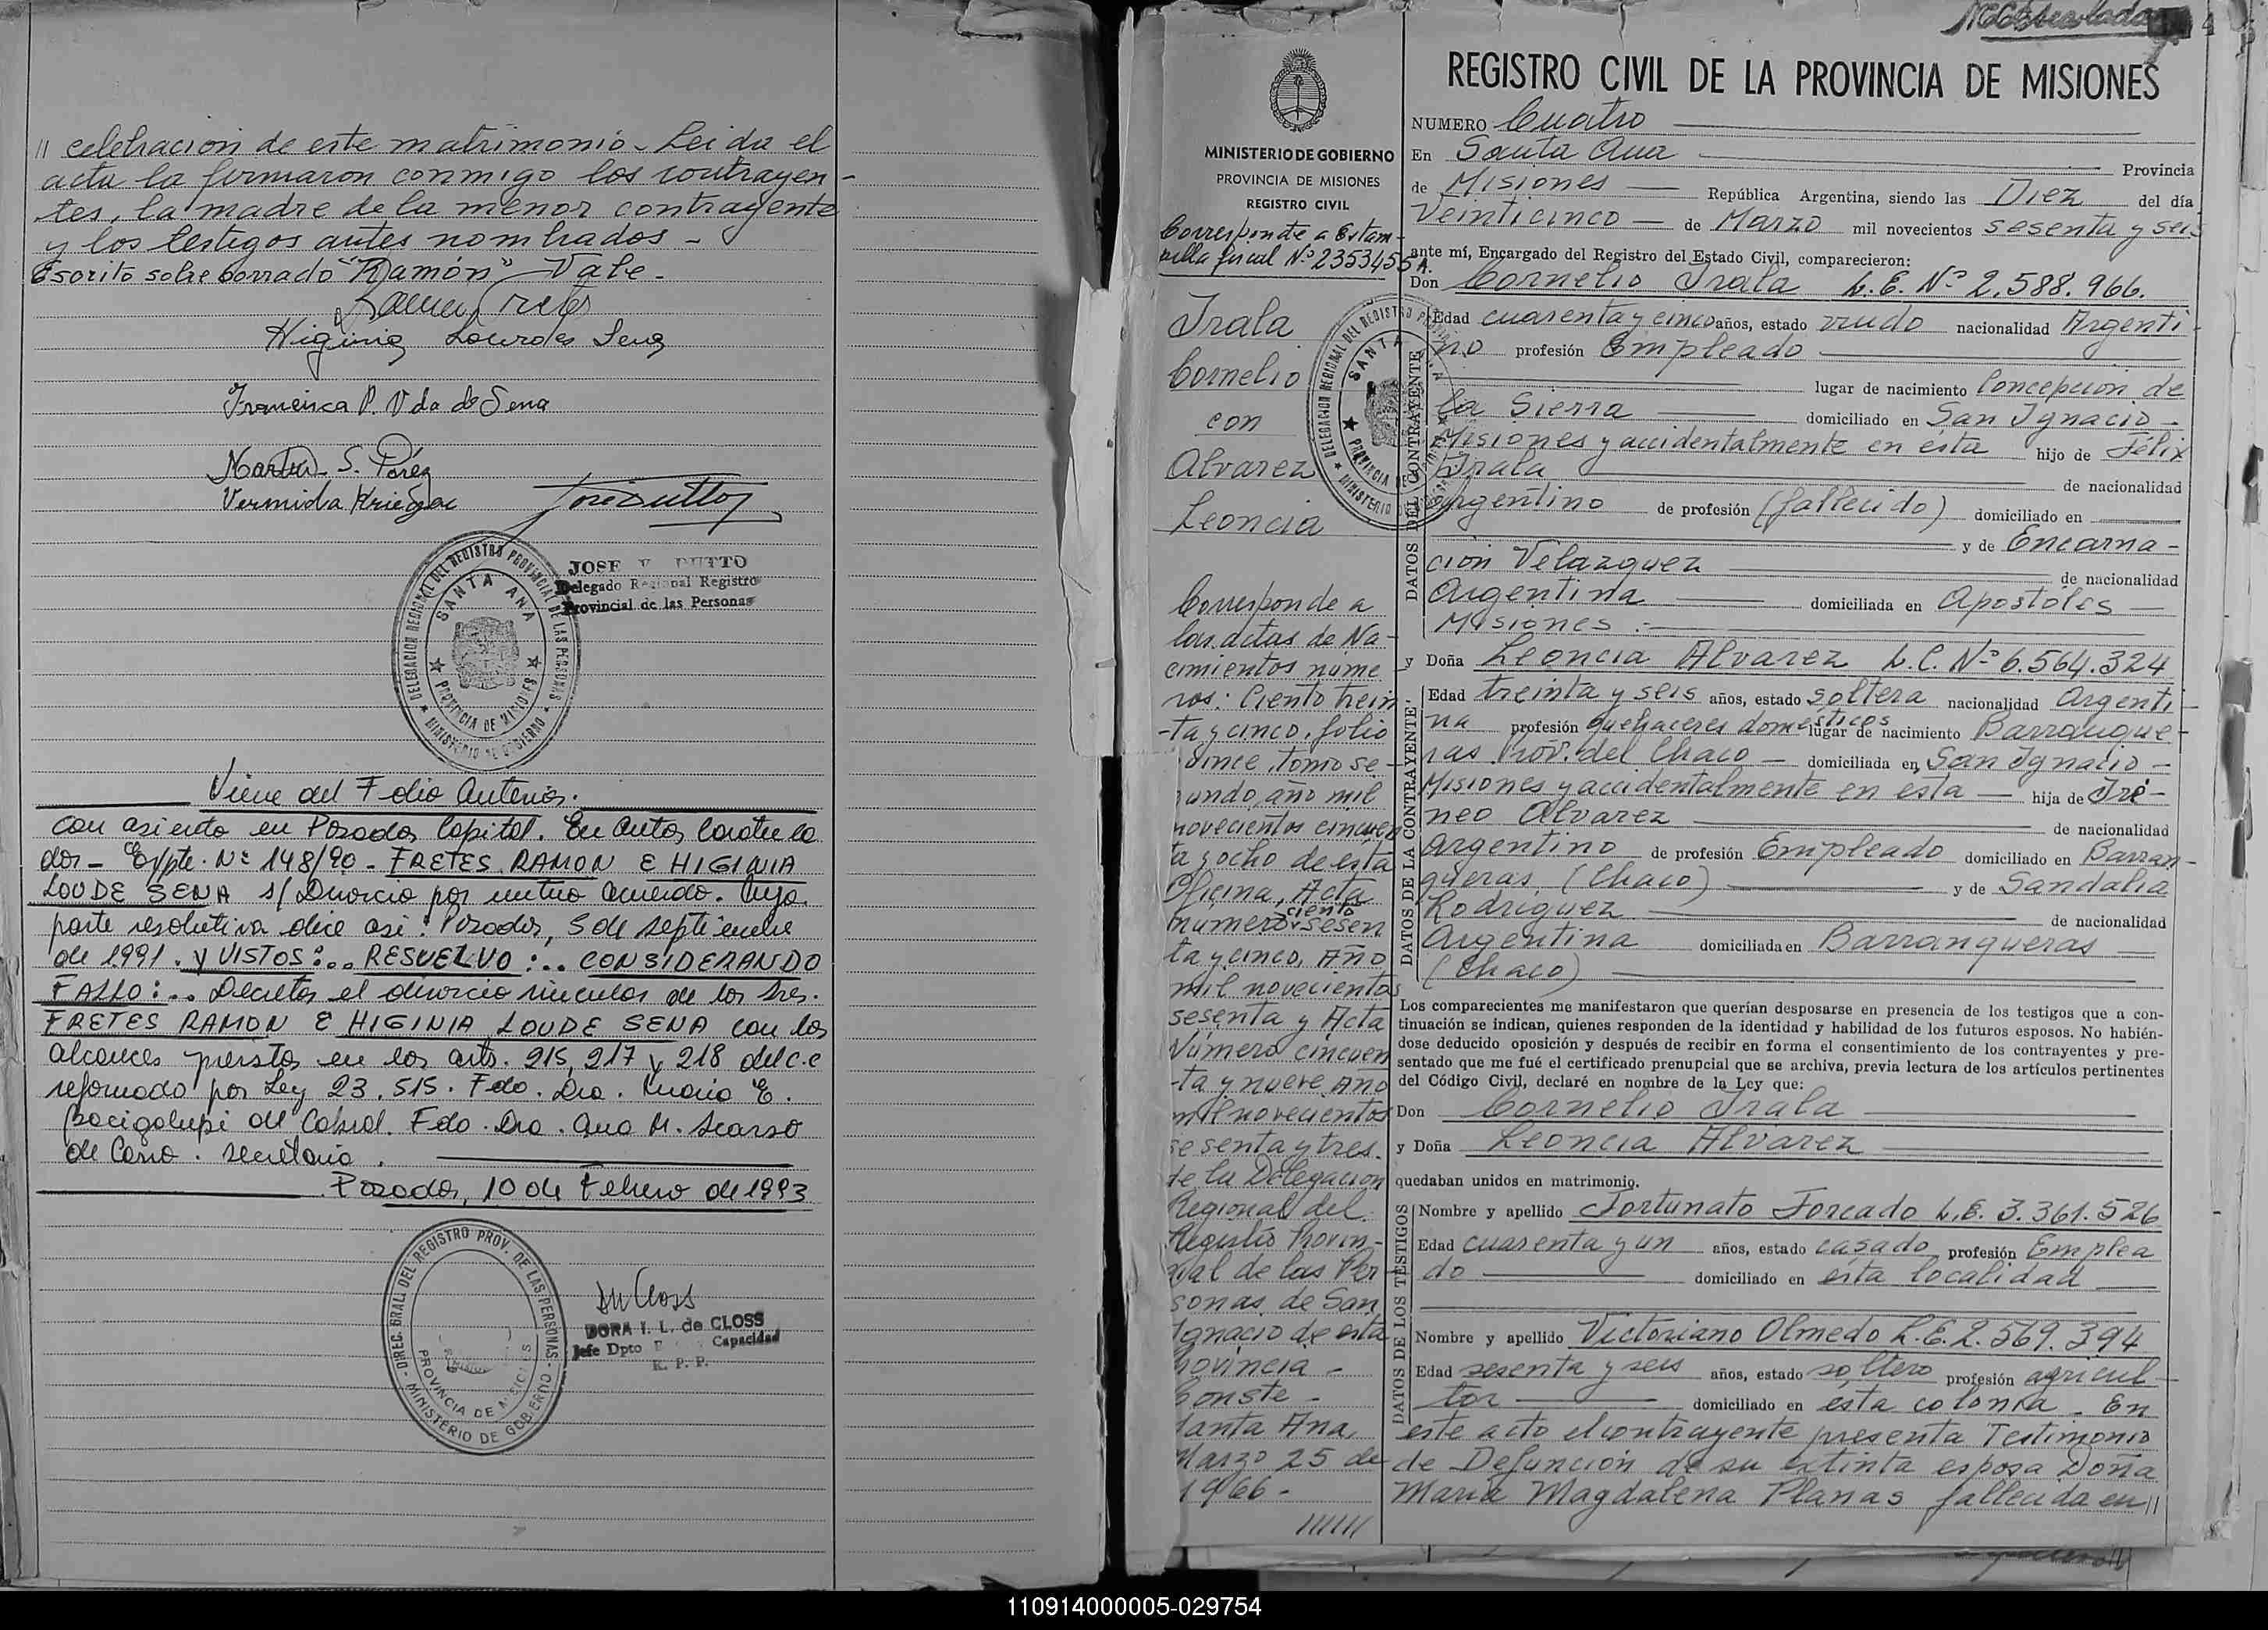 // celebracion de este matrimonio. Leida el
acta la firmaron conmigo los contrayen-
tes, la madre de la menor contrayente
y los testigos antes nombrados -
Escrito sobre borrado "Ramón" Vale -
Higinia Lourdes Sena
Francisca P. Vda de Sena
S. Pérez
Vermida Krieger
JOSE DUTTO
Delegado Regional Registro
Provincial de las Personas
DELEGACION REGIONAL DEL REGISTRO PROVINCIAL DE LAS PERSONAS
SANTA ANA
PROVINCIA DE MISIONES
MINISTERIO DE GOBIERNO
Viene del Folio Anterior.
con asiento en Posadas Capital. En Autos caratula
dos - Expte. Nº 148/90 - FRETES RAMON E HIGINIA
LOUDE SENA s/ Divorcio por mutuo acuerdo. Cuya
parte resolutiva dice asi: Posadas, 5 de septiembre
de 1991. Y VISTOS:.. RESUELVO:.. CONSIDERANDO
FALLO:.. Decretar el divorcio vincular de los Sres.
FRETES RAMON E HIGINIA LOUDE SENA con los
alcances previstos en los arts. 215, 217 y 218 del c.c
reformado por Ley 23.515. Fdo. Dra. Maria E.
Bacigalupi de Cabral. Fdo. Dra. Ana M. Scarso
de Cario. secretaria.
Posadas, 10 de Febrero de 1993
DIREC. GRAL. DEL REGISTRO PROV. DE LAS PERSONAS
PROVINCIA DE MISIONES
MINISTERIO DE GOBIERNO
DORA I. L. de CLOSS
Jefe Dpto Capacidad
R. P. P.
MINISTERIO DE GOBIERNO
PROVINCIA DE MISIONES
REGISTRO CIVIL
Corresponde a Estam-
pilla fiscal Nº 2353455 A.
Irala
Cornelio
con
Alvarez
Leoncia
DELEGACION REGIONAL DEL REGISTRO
SANTA
PROVINCIA DE
MINISTERIO
Corresponde a
las actas de Na-
cimientos nume
ros: Ciento trein
-ta y cinco, folio
quince, tomo se-
gundo, año mil
novecientos cincuen
ta y ocho de esta
Oficina, Acta
numero ciento sesen
ta y cinco, Año
mil novecientos
sesenta y Acta
Número cincuen
-ta y nueve Año
mil novecientos
sesenta y tres.
de la Delegacion
Regional del
Registro Provin-
cial de las Per-
sonas de San
Ignacio de esta
Provincia -
Conste -
Santa Ana,
Marzo 25 de
1966 -
//////
REGISTRO CIVIL DE LA PROVINCIA DE MISIONES
NUMERO Cuatro
En Santa Ana Provincia
de Misiones República Argentina, siendo las Diez del día
Veinticinco de Marzo mil novecientos sesenta y seis
ante mí, Encargado del Registro del Estado Civil, comparecieron:
Don Cornelio Irala L.E. Nº 2.588.966.
DATOS DEL CONTRAYENTE
Edad cuarenta y cinco años, estado viudo nacionalidad Argenti-
no profesión Empleado
lugar de nacimiento Concepcion de
la Sierra domiciliado en San Ignacio -
Misiones y accidentalmente en ésta hijo de Félix
Irala de nacionalidad
Argentino de profesión (fallecido) domiciliado en
y de Encarna-
ción Velazquez de nacionalidad
Argentina domiciliada en Apostoles -
Misiones.-
y Doña Leoncia Alvarez L.C. Nº 6.564.324
DATOS DE LA CONTRAYENTE
Edad treinta y seis años, estado soltera nacionalidad Argenti-
na profesión quehaceres domésticos lugar de nacimiento Barranque-
ras Prov. del Chaco - domiciliada en San Ignacio -
Misiones y accidentalmente en esta - hija de Iré-
neo Alvarez de nacionalidad
Argentino de profesión Empleado domiciliado en Barran-
queras. (Chaco) y de Sandalia
Rodriguez de nacionalidad
Argentina domiciliada en Barranqueras
(Chaco)
Los comparecientes me manifestaron que querían desposarse en presencia de los testigos que a con-
tinuación se indican, quienes responden de la identidad y habilidad de los futuros esposos. No habién-
dose deducido oposición y después de recibir en forma el consentimiento de los contrayentes y pre-
sentado que me fué el certificado prenupcial que se archiva, previa lectura de los artículos pertinentes
del Código Civil, declaré en nombre de la Ley que:
Don Cornelio Irala
y Doña Leoncia Alvarez
quedaban unidos en matrimonio.
DATOS DE LOS TESTIGOS
Nombre y apellido Fortunato Forcado L.E. 3.361.526
Edad cuarenta y un años, estado casado profesión Emplea
do domiciliado en esta localidad
Nombre y apellido Victoriano Olmedo L.E. 2.569.394
Edad sesenta y seis años, estado soltero profesión agricul-
tor domiciliado en esta colonia. En
este acto el contrayente presenta Testimonio
de Defunción de su extinta esposa Doña
Maria Magdalena Planas fallecida en //
110914000005-029754